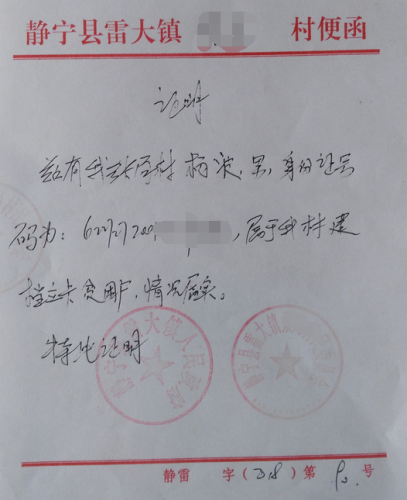 静宁县雷大镇 村便函
证明
兹有我 村 男,身份证号
码为: 622727200 ,属于我村建
档立卡贫困户,情况属实。
特此证明
静宁县雷大镇人民政府
静宁县雷大镇
静雷 字( )第 号